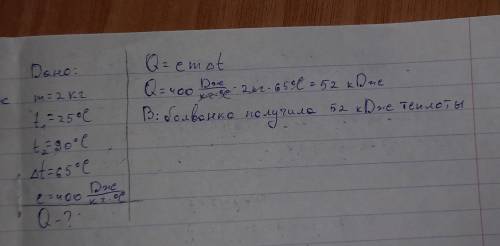 Дано:
m=2кг
t₁=25°C
t₂=90°C
Δt=65°C
c=400 Дж/кг·°C
Q-?
Q=cmΔt
Q=400 Дж/кг·°C · 2кг·65°C=52 кДж
В: болванка получила 52 кДж теплоты